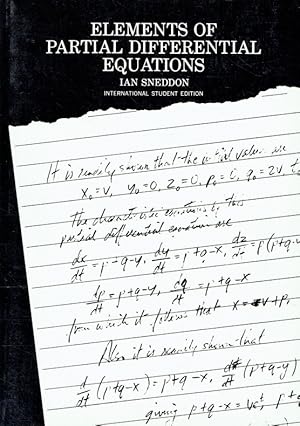 ELEMENTS OF
PARTIAL DIFFERENTIAL
EQUATIONS
IAN SNEDDON
INTERNATIONAL STUDENT EDITION
It is readily shown that the initial values are
x₀=v, y₀=0, z₀=0, p₀=0, q₀=2v
The characteristic equations of this
partial differential equation are
dx/dt = p+q-y, dy/dt = p+q-x, dz/dt = p(p+q-y
dp/dt = p+q-y, dq/dt = p+q-x
from which it follows that x = v+p,
Also it is readily shown that
d/dt (p+q-x) = p+q-x, d/dt (p+q-y)
giving p+q-x = veᵗ, p+q-